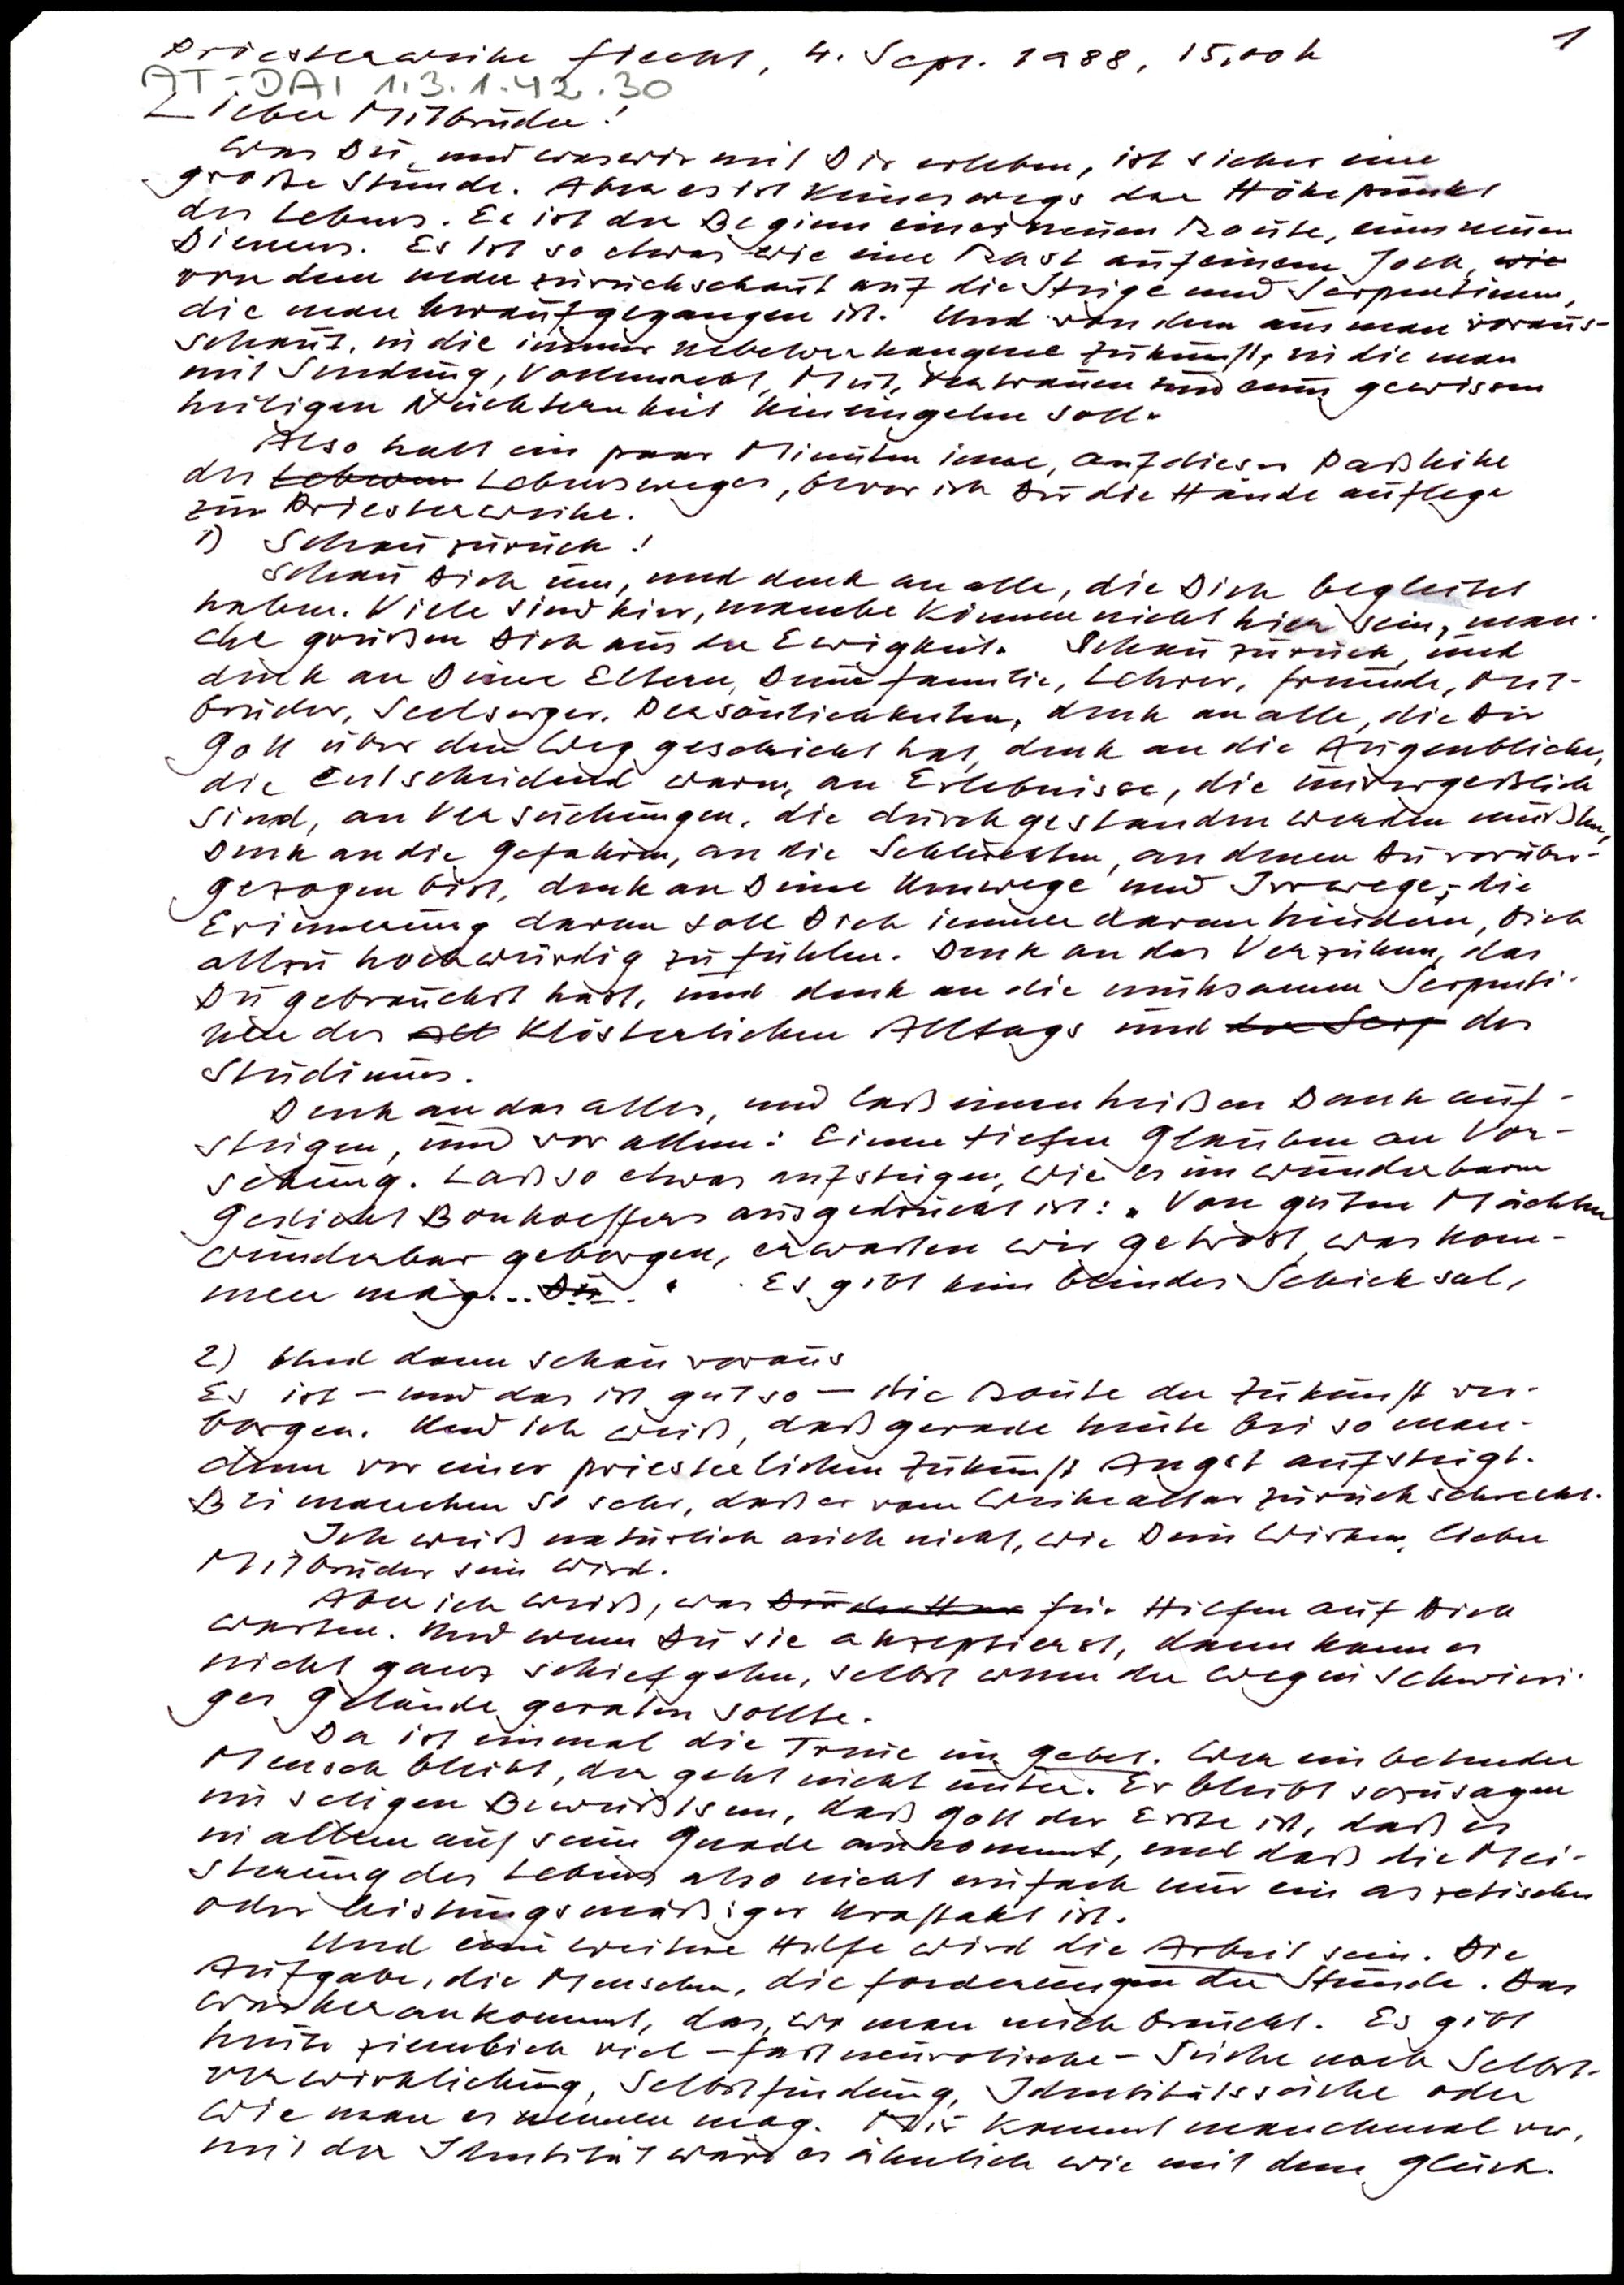 Priesterweihe Fiecht, 4. Sept. 1988, 15,00 h
1
AT-DAI 1.3.1.42.30
Lieber Mitbruder!
Was Du, und was wir mit Dir erleben, ist sicher eine
große Stunde. Aber es ist keineswegs der Höhepunkt
des Lebens. Es ist der Beginn einer neuen Route, eines neuen
Dienens. Es ist so etwas wie eine Rast auf einem Joch, wie
von dem man zurückschaut auf die Steige und Serpentinen,
die man heraufgegangen ist. Und von dem aus man voraus-
schaut, in die immer nebelverhangene Zukunft, in die man
mit Sendung, Vollmacht, Mut, Vertrauen und einer gewissen
heiligen Nüchternheit hineingehn soll.
Also halt ein paar Minuten inne, auf dieser Paßhöhe
des Lebens Lebensweges, bevor ich Dir die Hände auflege
zur Priesterweihe.
1) Schau zurück!
Schau Dich um, und denk an alle, die Dich begleitet
haben. Viele sind hier, manche können nicht hier sein, man-
che grüßen Dich aus der Ewigkeit. Schau zurück, und
denk an Deine Eltern, Deine Familie, Lehrer, Freunde, Mit-
brüder, Seelsorger, Persönlichkeiten, denk an alle, die Dir
Gott über den Weg geschickt hat, denk an die Augenblicke,
die entscheidend waren, an Erlebnisse, die unvergeßlich
sind, an Versuchungen, die durchgestanden werden mußten,
Denk an die Gefahren, an die Schluchten, an denen Du vorüber-
gezogen bist, denk an Deine Umwege und Irrwege, – die
Erinnerung daran soll Dich immer daran hindern, Dich
allzu hochwürdig zu fühlen. Denk an das Verzeihen, das
Du gebraucht hast, und denk an die mühsamen Serpenti-
nen des All klösterlichen Alltags und der Serp des
Studiums.
Denk an das alles, und laß einen heißen Dank auf-
steigen, und vor allem: Einen tiefen Glauben an Vor-
sehung. Laß so etwas aufsteigen, wie es im wunderbaren
Gedicht Bonhoeffers ausgedrückt ist: „Von guten Mächten
wunderbar geborgen, erwarten wir getrost, was kom-
men mag... Du " Es gibt kein blindes Schicksal,
2) Und dann schau voraus
Es ist – und das ist gut so – die Route der Zukunft ver-
borgen. Und ich weiß, daß gerade heute bei so man-
chem vor einer priesterlichen Zukunft Angst aufsteigt.
Bei manchen so sehr, daß er vom Weihealtar zurückschreckt.
Ich weiß natürlich auch nicht, wie Dein Wirken, lieber
Mitbruder sein wird.
Aber ich weiß, was für Hilfen auf Dich
warten. Und wenn Du sie akzeptierst, dann kann es
nicht ganz schiefgehn, selbst wenn der Weg in schwieri-
ges Gelände geraten sollte.
Da ist einmal die Treue im Gebet. Wer ein betender
Mensch bleibt, der geht nicht unter. Er bleibt sozusagen
im seligen Bewußtsein, daß Gott der Erste ist, daß es
in allem auf seine Gnade ankommt, und daß die Mei-
sterung des Lebens also nicht einfach nur ein asketischer
oder leistungsmäßiger Kraftakt ist.
Und eine weitere Hilfe wird die Arbeit sein. Die
Aufgabe, die Menschen, die Forderungen der Stunde. Das
was herankommt, das, wo man mich braucht. Es gibt
heute ziemlich viel – fast neurotische – Suche nach Selbst-
verwirklichung, Selbstfindung, Identitätssuche oder
wie man es nennen mag. Mir kommt manchmal vor,
mit der Identität wäre es ähnlich wie mit dem Glück.